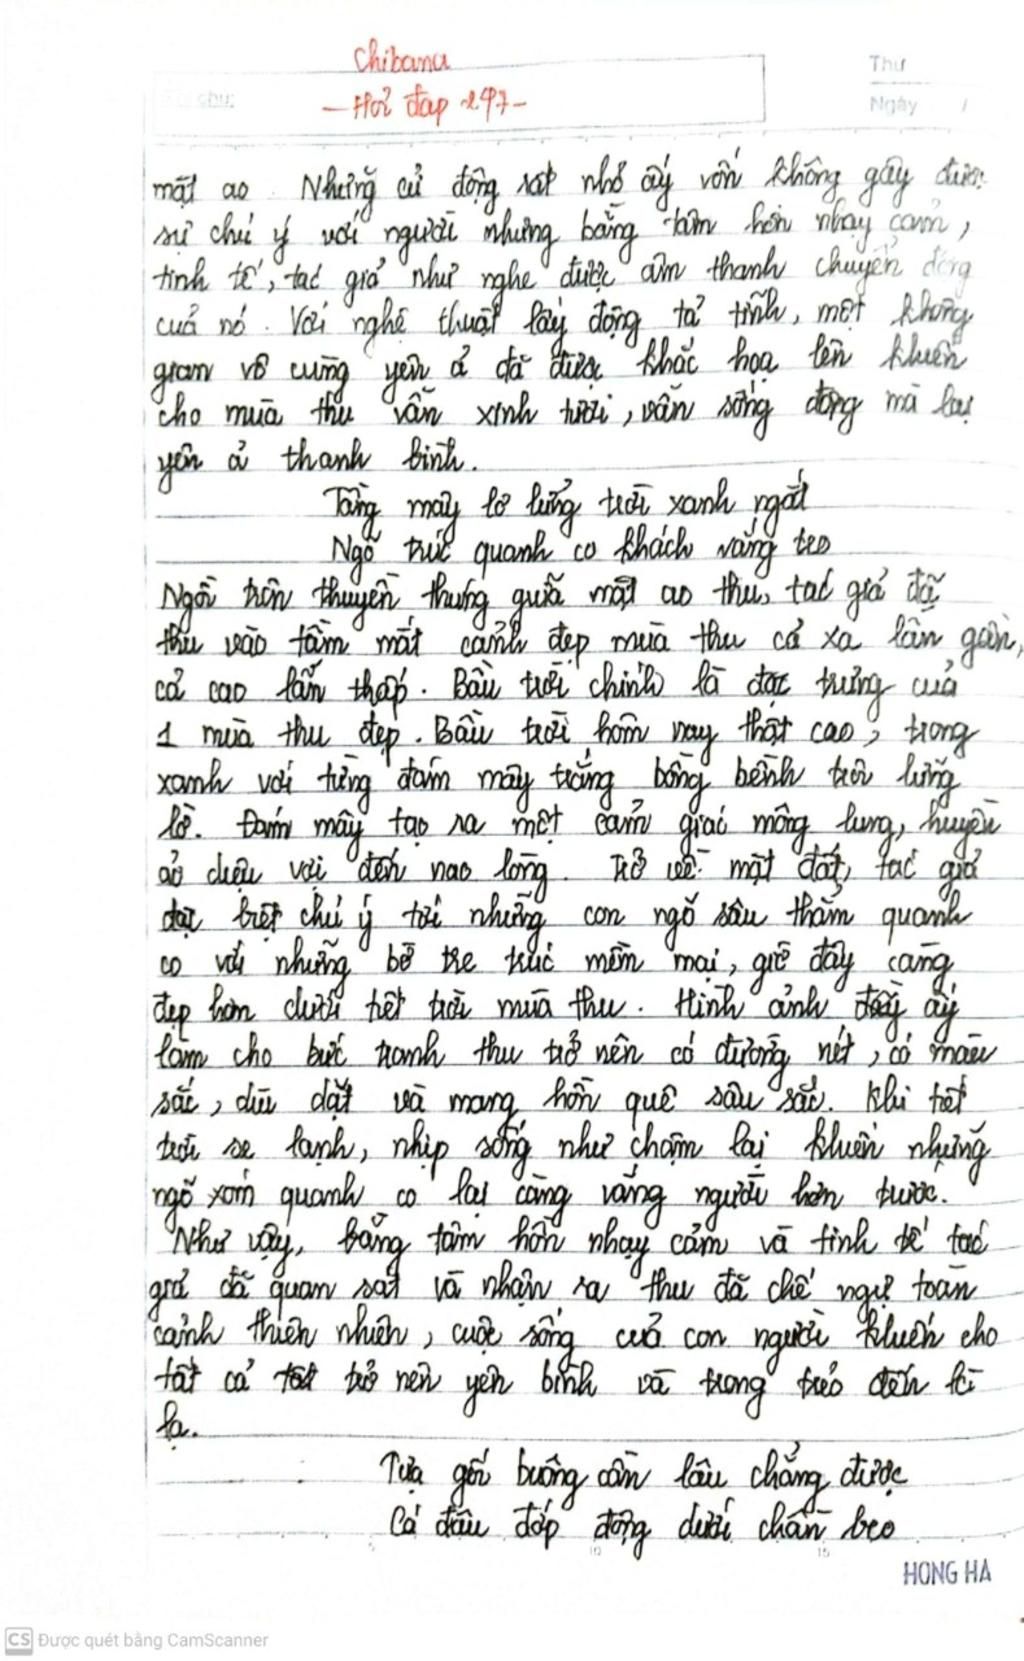 Chibana
Thứ
Ghi chú:
— Hỏi đáp 247 -
Ngày /
mặt ao. Những cử động rất nhỏ ấy vốn không gây được
sự chú ý với người nhưng bằng tâm hồn nhạy cảm,
tinh tế, tác giả như nghe được âm thanh chuyển động
của nó. Với nghệ thuật lấy động tả tĩnh, một không
gian vô cùng yên ả đã được khắc hoạ lên khiến
cho mùa thu vẫn xinh tươi, vẫn sống động mà lại
yên ả thanh bình.
Tầng mây lơ lửng trời xanh ngắt
Ngõ trúc quanh co khách vắng teo
Ngồi trên thuyền thưng giữa mặt ao thu, tác giả đã
thu vào tầm mắt cảnh đẹp mùa thu cả xa lẫn gần,
cả cao lẫn thấp. Bầu trời chính là đặc trưng của
1 mùa thu đẹp. Bầu trời hôm nay thật cao, trong
xanh với từng đám mây trắng bồng bềnh trôi lững
lờ. Đám mây tạo ra một cảm giác mông lung, huyền
ảo diệu vợi đến nao lòng. Trở về mặt đất, tác giả
đặc biệt chú ý tới những con ngõ sâu thẳm quanh
co với những bờ tre trúc mềm mại, giờ đây càng
đẹp hơn dưới tiết trời mùa thu. Hình ảnh đầy ấy
làm cho bức tranh thu trở nên có đường nét, có màu
sắc, dìu dặt và mang hồn quê sâu sắc. Khi tiết
trời se lạnh, nhịp sống như chậm lại khiến những
ngõ xóm quanh co lại càng vắng người hơn trước.
Như vậy, bằng tâm hồn nhạy cảm và tinh tế tác
giả đã quan sát và nhận ra thu đã chế ngự toàn
cảnh thiên nhiên, cuộc sống của con người khiến cho
tất cả trở nên yên bình và trong trẻo đến kì
lạ.
Tựa gối buông cần lâu chẳng được
Cá đâu đớp động dưới chân bèo
5 10 15
HONG HA
CS Được quét bằng CamScanner